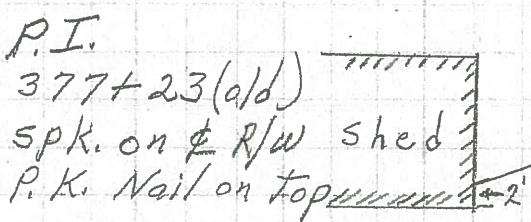 P.I.
377+23(old)
spk. on ℄ R/W shed
P.K. Nail on top
2'